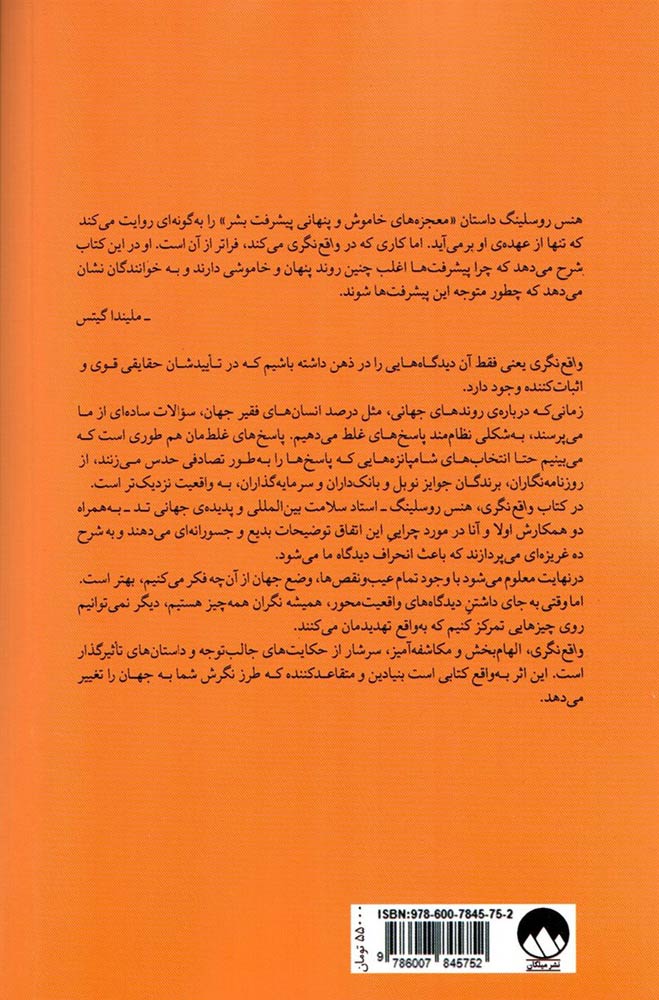 هنس روسلینگ داستان «معجزه‌های خاموش و پنهانی پیشرفت بشر» را به‌گونه‌ای روایت می‌کند
که تنها از عهده‌ی او برمی‌آید. اما کاری که در واقع‌نگری می‌کند، فراتر از آن است. او در این کتاب
شرح می‌دهد که چرا پیشرفت‌ها اغلب چنین روند پنهان و خاموشی دارند و به خوانندگان نشان
می‌دهد که چطور متوجه این پیشرفت‌ها شوند.
ـ ملیندا گیتس
واقع‌نگری یعنی فقط آن دیدگاه‌هایی را در ذهن داشته باشیم که در تأییدشان حقایقی قوی و
اثبات‌کننده وجود دارد.
زمانی‌که درباره‌ی روندهای جهانی، مثل درصد انسان‌های فقیر جهان، سؤالات ساده‌ای از ما
می‌پرسند، به‌شکلی نظام‌مند پاسخ‌های غلط می‌دهیم. پاسخ‌های غلط‌مان هم طوری است که
می‌بینیم حتا انتخاب‌های شامپانزه‌هایی که پاسخ‌ها را به‌طور تصادفی حدس می‌زنند، از
روزنامه‌نگاران، برندگان جوایز نوبل و بانک‌داران و سرمایه‌گذاران، به واقعیت نزدیک‌تر است.
در کتاب واقع‌نگری، هنس روسلینگ ـ استاد سلامت بین‌المللی و پدیده‌ی جهانی تد ـ به‌همراه
دو همکارش اولا و آنا در مورد چرایی این اتفاق توضیحات بدیع و جسورانه‌ای می‌دهند و به شرح
ده غریزه‌ای می‌پردازند که باعث انحراف دیدگاه ما می‌شود.
درنهایت معلوم می‌شود با وجود تمام عیب‌ونقص‌ها، وضع جهان از آن‌چه فکر می‌کنیم، بهتر است.
اما وقتی به جای داشتنِ دیدگاه‌های واقعیت‌محور، همیشه نگران همه‌چیز هستیم، دیگر نمی‌توانیم
روی چیزهایی تمرکز کنیم که به‌واقع تهدیدمان می‌کنند.
واقع‌نگری، الهام‌بخش و مکاشفه‌آمیز، سرشار از حکایت‌های جالب‌توجه و داستان‌های تأثیرگذار
است. این اثر به‌واقع کتابی است بنیادین و متقاعدکننده که طرز نگرش شما به جهان را تغییر
می‌دهد.
ISBN:978-600-7845-75-2
9 786007 845752
۵۵۰۰۰ تومان
نشر میلکان